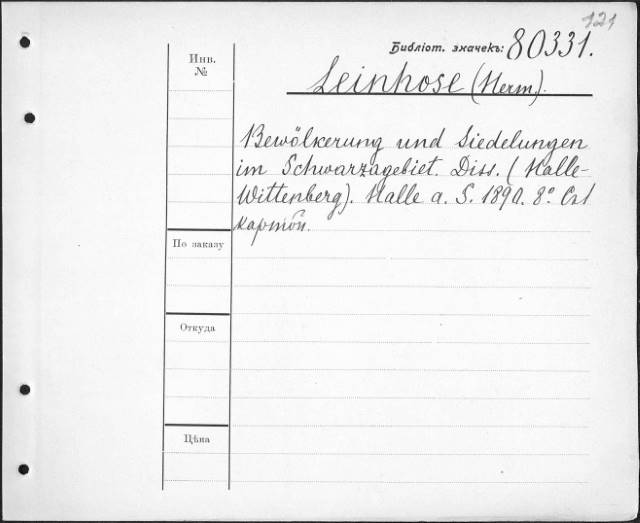 121
Библіот. значекъ: 80331.
Инв.
№
Leinhose (Herm.).
Bewölkerung und Siedelungen
im Schwarzagebiet. Diss. (Halle-
Wittenberg). Halle a. S. 1890. 8° Съ 1
картой.
По заказу
Откуда
Цѣна